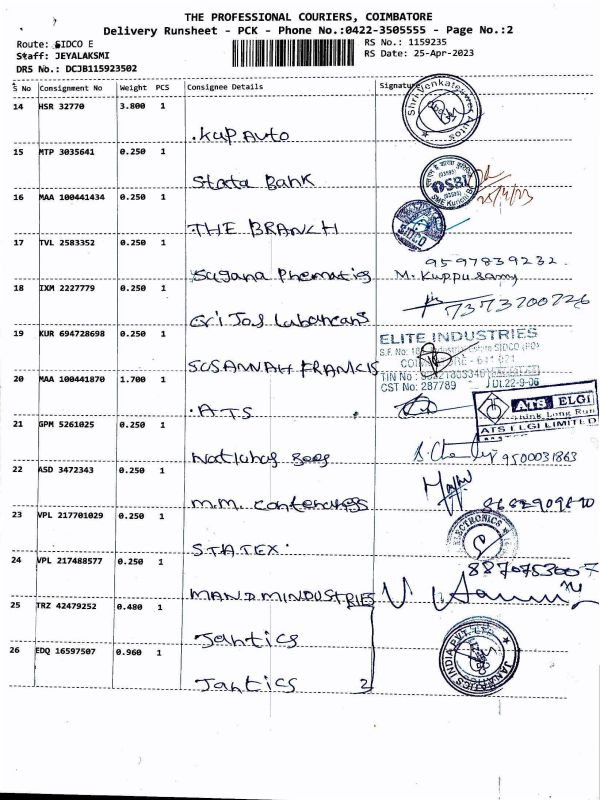 THE PROFESSIONAL COURIERS, COIMBATORE
Delivery Runsheet - PCK - Phone No.:0422-3505555 - Page No.:2
Route: SIDCO E
RS No.: 1159235
Staff: JEYALAKSMI
RS Date: 25-Apr-2023
DRS No.: DCJB115923502
S No Consignment No Weight PCS Consignee Details Signature
14 HSR 32770 3.800 1
Kup Auto
15 MTP 3035641 0.250 1
State Bank
SBI
25/4/23
16 MAA 100441434 0.250 1
THE BRANCH
SIDCO
17 TVL 2583352 0.250 1
9597839232
M. Kuppusamy
18 IXM 2227779 0.250 1
7373700726
19 KUR 694728698 0.250 1
SUSANNAH FRANCIS
ELITE INDUSTRIES
S.F. No: SIDCO (PO)
641 021
TIN No
CST No: 287789 Dt.22-9-06
20 MAA 100441870 1.700 1
ATS
ATS ELGI
Think Long Run
ATS ELGI LIMITED
21 GPM 5261025 0.250 1
9500031863
22 ASD 3472343 0.250 1
M.M.
23 VPL 217701029 0.250 1
STATEX
ELECTRONICS
24 VPL 217488577 0.250 1
8870753007
MAN D M INDUSTRIES
25 TRZ 42479252 0.480 1
Jantics
26 EDQ 16597507 0.960 1
Jantics 2
JANATICS INDIA PVT. LTD.